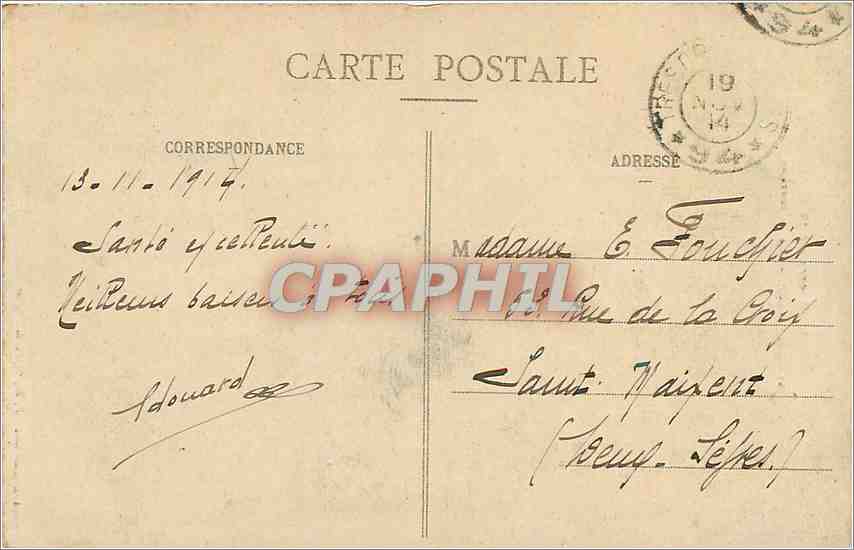 CARTE POSTALE
CORRESPONDANCE
13-11-1914.
Santé excellente.
Meilleurs baisers à tous
Edouard
ADRESSE
Madame E. Fouchier
Rue de la Croix
Saint-Maixent
(Deux-Sèvres)
TRESOR
19
NOV
14
* 94 *
* 94 *
CPAPHIL